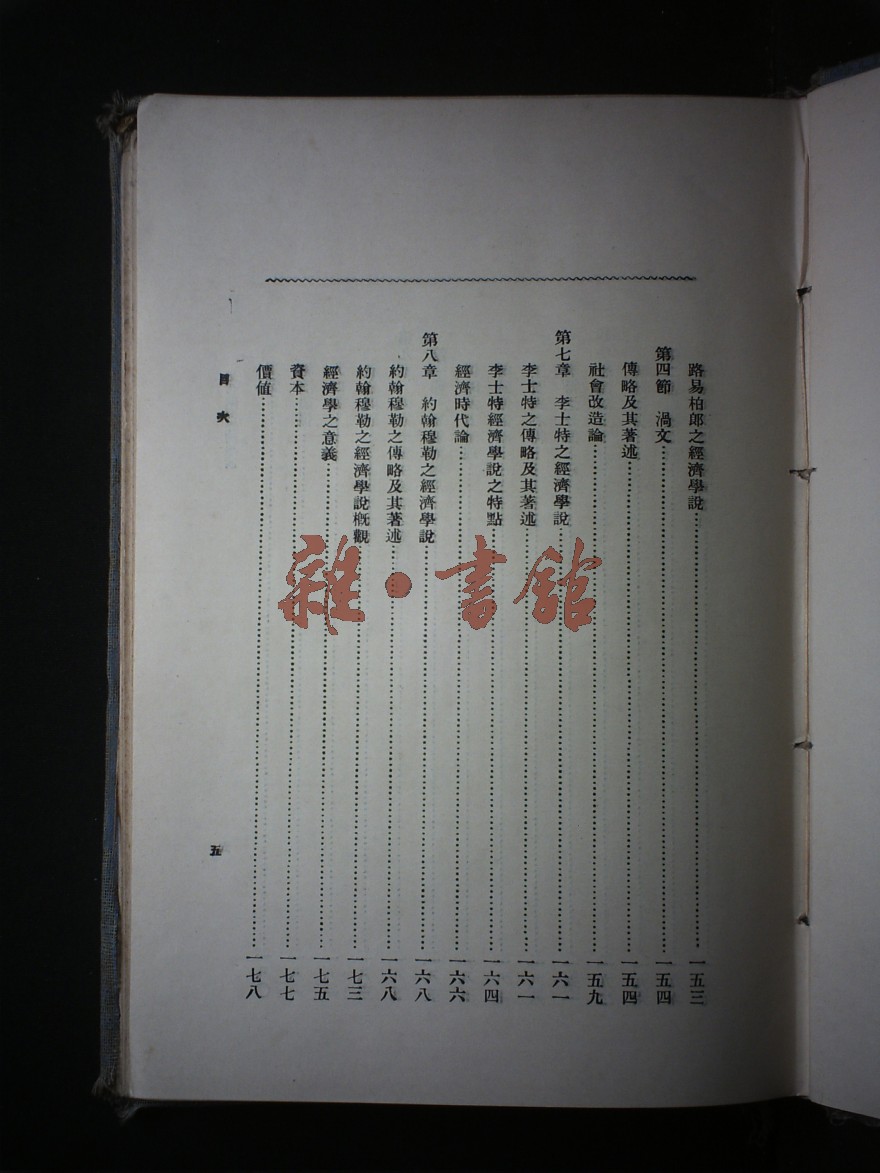 路易柏郎之經濟學說……一五三
第四節　渦文……一五四
傳略及其著述……一五四
社會改造論……一五九
第七章　李士特之經濟學說……一六一
李士特之傳略及其著述……一六一
李士特經濟學說之特點……一六四
經濟時代論……一六六
第八章　約翰穆勒之經濟學說……一六八
約翰穆勒之傳略及其著述……一六八
約翰穆勒之經濟學說概觀……一七三
經濟學之意義……一七五
資本……一七七
價值……一七八
目次
五
雜·書館